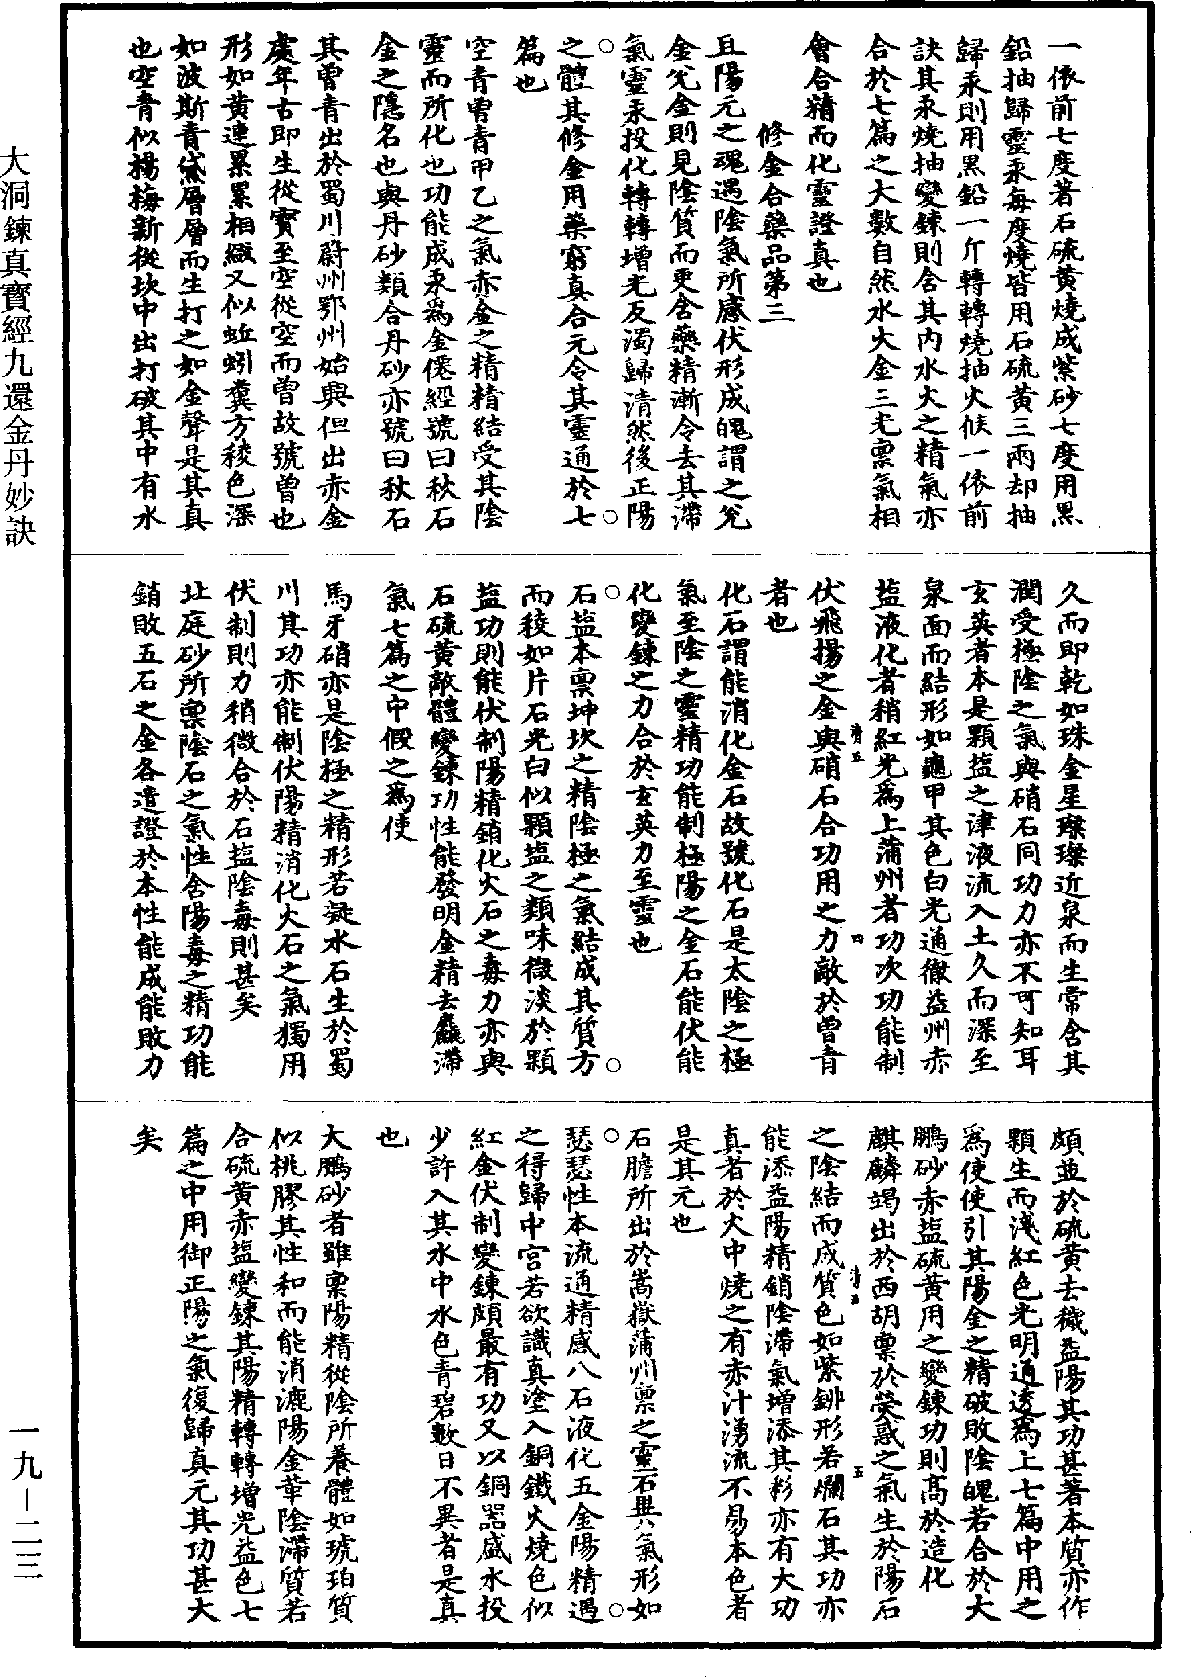 一依前七度著石硫黃燒成紫砂七度用黑
鉛抽歸靈汞每度燒皆用石硫黃三兩却抽
歸汞則用黑鉛一斤轉轉燒抽火候一依前
訣其汞燒抽變鍊則含其內水火之精氣亦
合於七篇之大數自然水火金三光稟氣相
會合精而化靈證真也
修金合藥品第三
且陽元之魂遇陰氣所感伏形成魄謂之兊
金兊金則見陰質而更含藥精漸令去其滯
氣靈汞投化轉轉增光反濁歸清然後正陽
之體其修金用藥窮真合元令其靈通於七
篇也
空青曾青甲乙之氣亦金之精精結受其陰
靈而所化也功能成汞爲金僊經號曰秋石
金之隱名也與丹砂類合丹砂亦號曰秋石
其曾青出於蜀川蔚州鄂州始興但出赤金
處年古即生從實至空從空而曾故號曾也
形如黃連累累相綴又似蚯蚓糞方稜色深
如波斯青黛層層而生打之如金聲是其真
也空青似楊梅新從坎中出打破其中有水
久而即乾如珠金星璨璨近泉而生常含其
潤受極陰之氣與硝石同功力亦不可知耳
玄英者本是顆盐之津液流入土久而深至
泉面而結形如龜甲其色白光通徹益州赤
盐液化者稍紅光爲上蒲州者功次功能制
伏飛揚之金與硝石合功用之力敵於曾青
者也
化石謂能消化金石故號化石是太陰之極
氣至陰之靈精功能制極陽之金石能伏能
化變鍊之力合於玄英力至靈也
石盐本稟坤坎之精陰極之氣結成其質方
而稜如片石光白似顆盐之類味微淡於顆
盐功則能伏制陽精銷化火石之毒力亦與
石硫黃敵體變鍊功性能發明金精去麤滯
氣七篇之中假之爲使
馬牙硝亦是陰極之精形若凝水石生於蜀
川其功亦能制伏陽精消化火石之氣獨用
伏制則力稍微合於石盐陰毒則甚矣
北庭砂所稟陰石之氣性含陽毒之精功能
銷敗五石之金各遣證於本性能成能敗力
頗並於硫黃去穢益陽其功甚著本質亦作
顆生而淺紅色光明通透爲上七篇中用之
爲使使引其陽金之精破敗陰魄若合於大
鵬砂赤盐硫黃用之變鍊功則高於造化
麒麟竭出於西胡稟於熒惑之氣生於陽石
之陰結而成質色如紫鉚形若爛石其功亦
能添益陽精銷陰滯氣增添其彩亦有大功
真者於火中燒之有赤汁湧流不易本色者
是其元也
石膽所出於嵩嶽蒲州稟之靈石異氣形如
瑟瑟性本流通精感八石液化五金陽精遇
之得歸中宮若欲識真塗入銅鐵火燒色似
紅金伏制變鍊頗最有功又以銅器盛水投
少許入其水中水色青碧數日不異者是真
也
大鵬砂者雖稟陽精從陰所養體如琥珀質
似桃膠其性和而能消漉陽金華陰滯質若
合硫黃赤盐變鍊其陽精轉轉增光益色七
篇之中用御正陽之氣復歸真元其功甚大
矣
大洞鍊真寶經九還金丹妙訣
一九—二三